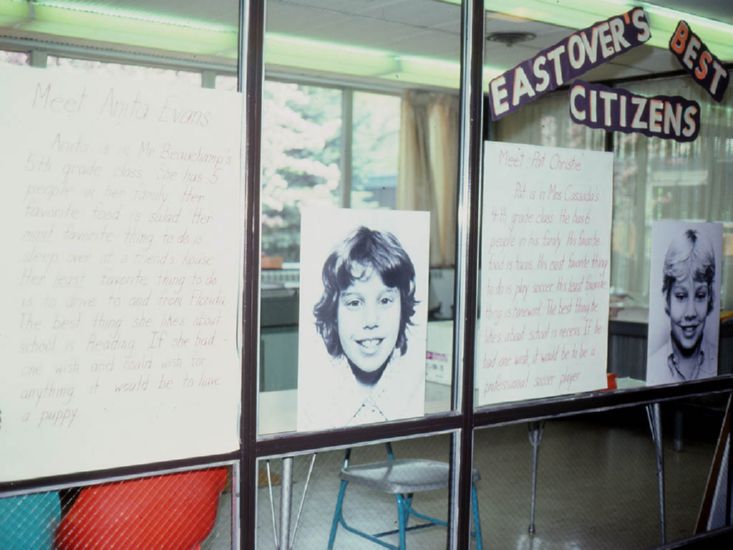 Meet Anita Evans
Anita is in Mr. Beauchamp's
5th grade class. She has 5
people in her family. Her
favorite food is salad. Her
most favorite thing to do is
sleep over at a friend's house.
Her least favorite thing to do
is to drive to and from Florida.
The best thing she likes about
school is Reading. If she had
one wish and could wish for
anything it would be to have
a puppy.
EASTOVER'S BEST
CITIZENS
Meet "Pat Christie"
Pat is in Mrs.
4th grade class. He has 6
people in his family. His favorite
food is tacos. His most favorite thing
to do is play soccer. His least favorite
thing is homework. The best thing he
likes about school is recess. If he
had one wish, it would be to be a
professional soccer player.